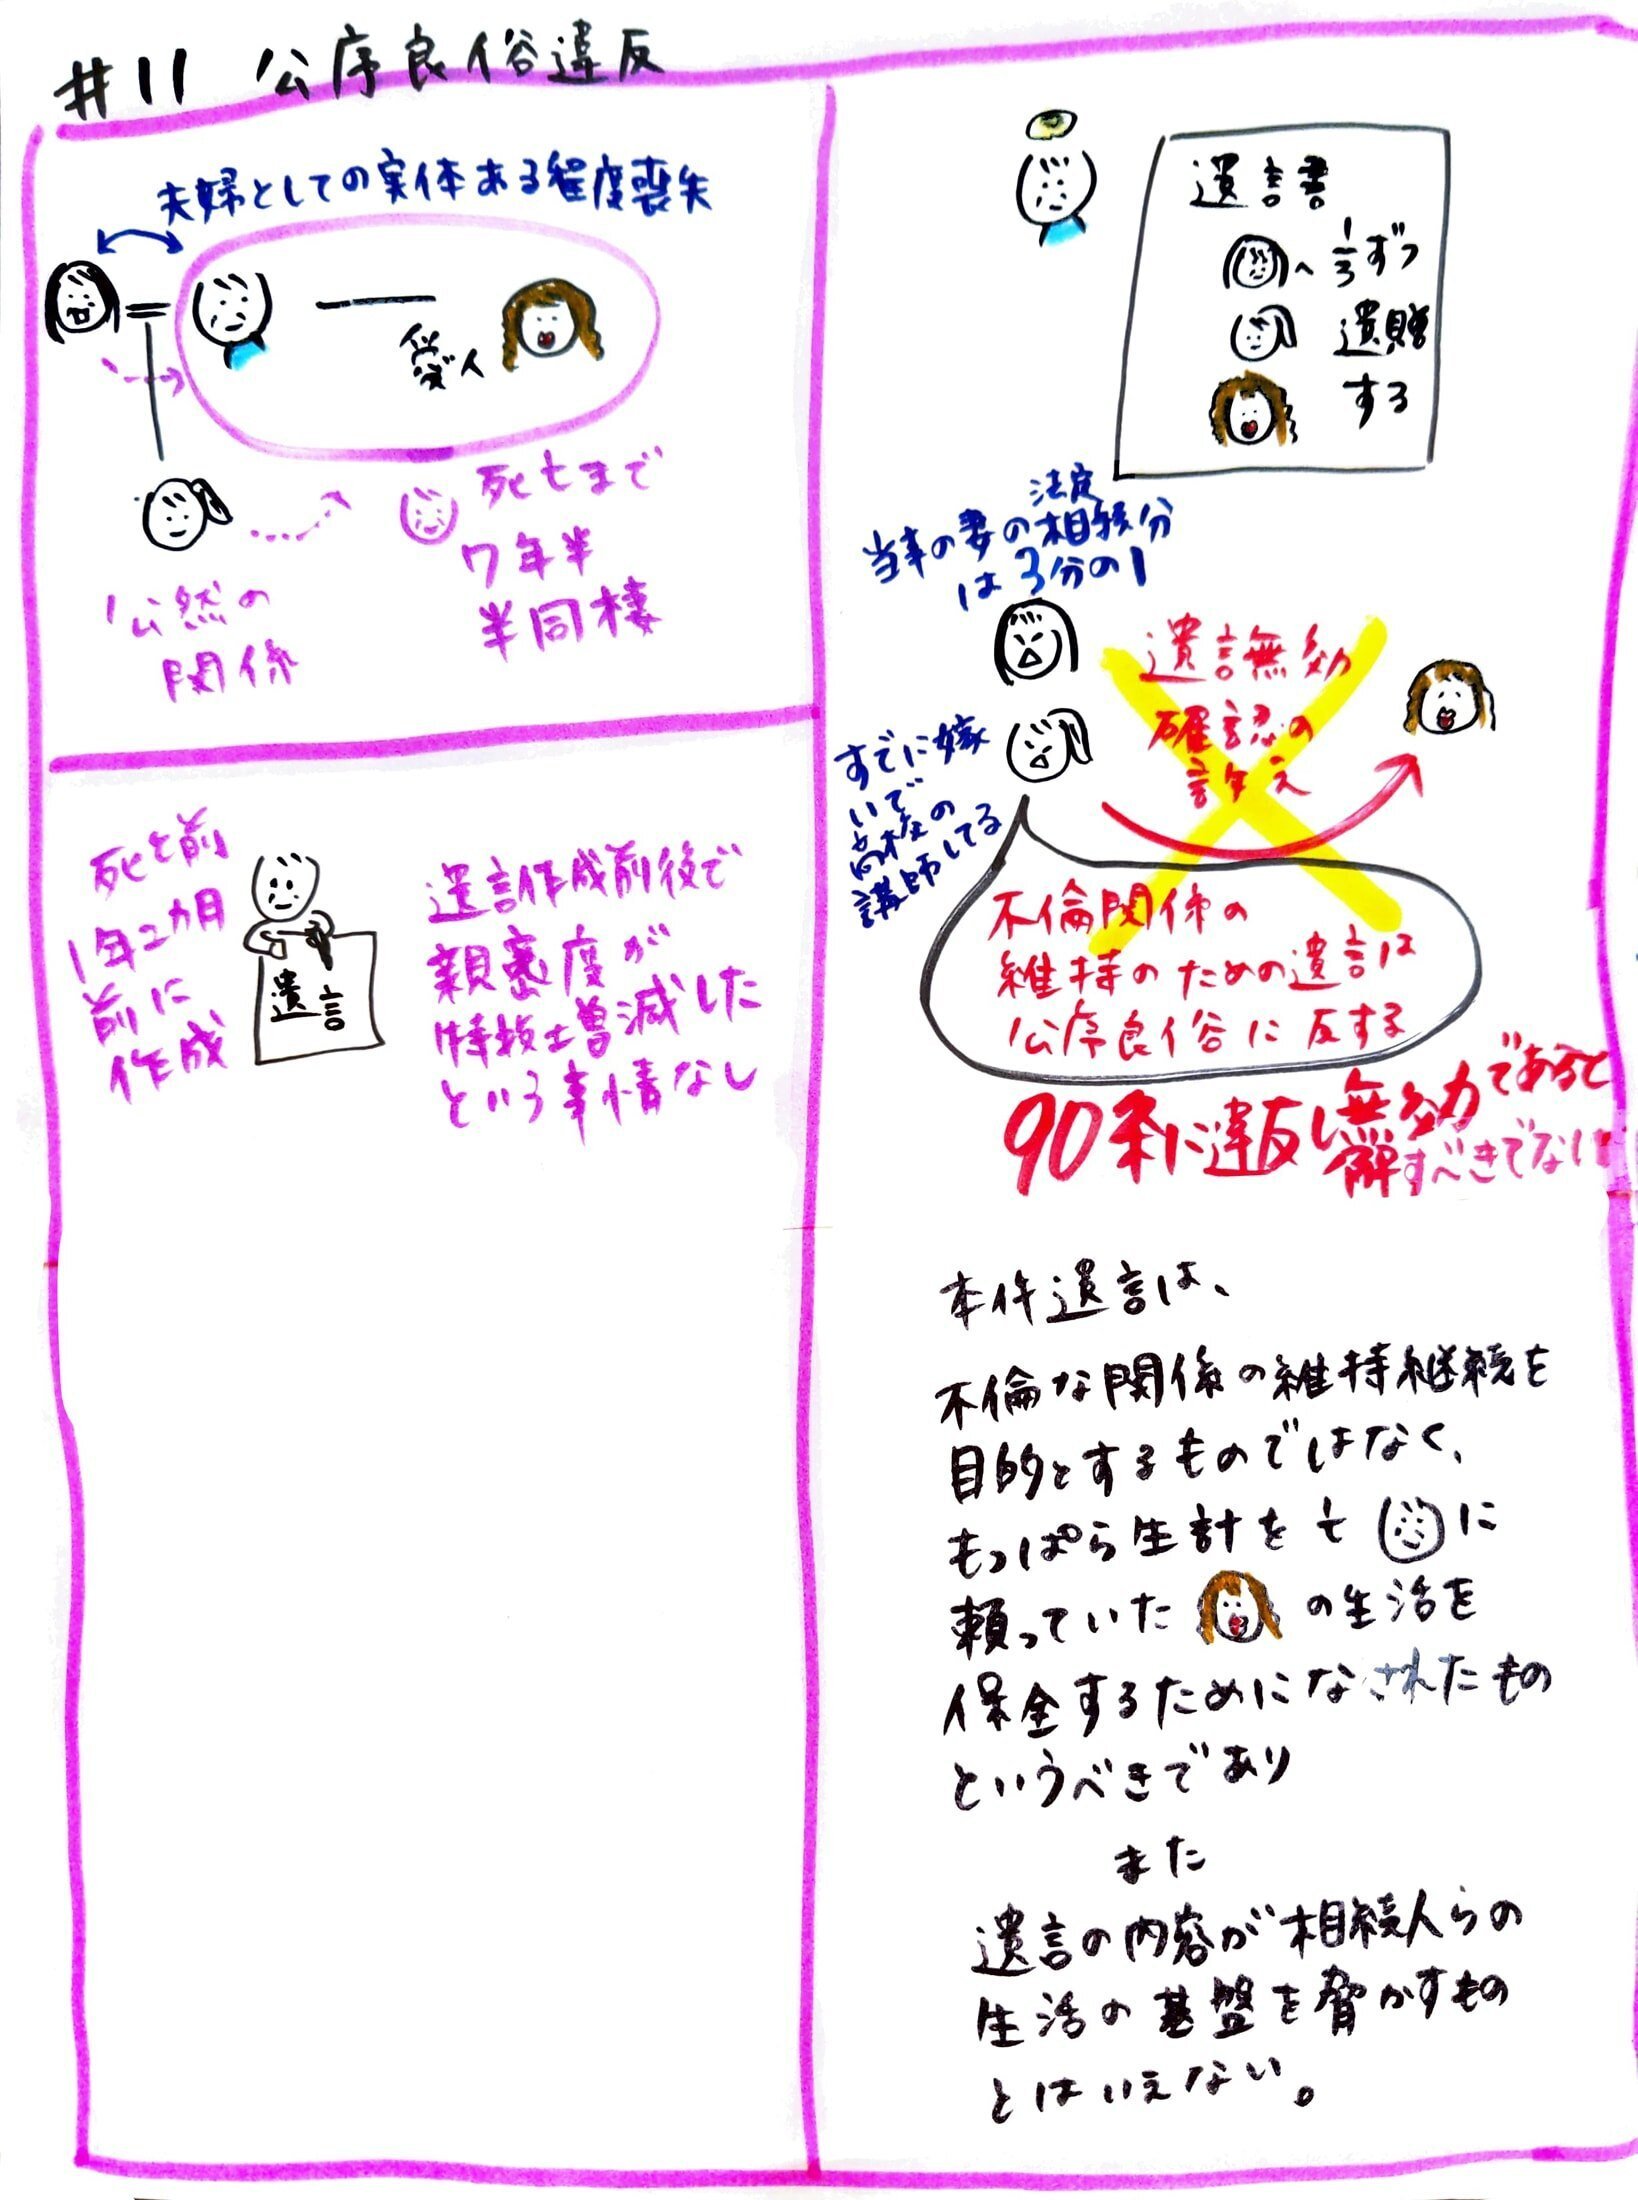 #11 公序良俗違反
夫婦としての実体ある程度喪失
愛人
死亡まで
7年半
半同棲
公然の
関係
死亡前
1年2カ月
前に
作成
遺言
遺言作成前後で
親密度が
特段増減した
という事情なし
遺言書
へ 1/3ずつ
遺贈
する
当事の妻の法定相続分
は3分の1
すでに嫁
いで
高校の
講師してる
遺言無効
確認の
訴え
不倫関係の
維持のための遺言は
公序良俗に反する
90条に違反し無効であると
解すべきでない
本件遺言は、
不倫な関係の維持継続を
目的とするものではなく、
もっぱら生計を亡 に
頼っていた の生活を
保全するためになされたもの
というべきであり
また
遺言の内容が相続人らの
生活の基盤を脅かすもの
とはいえない。